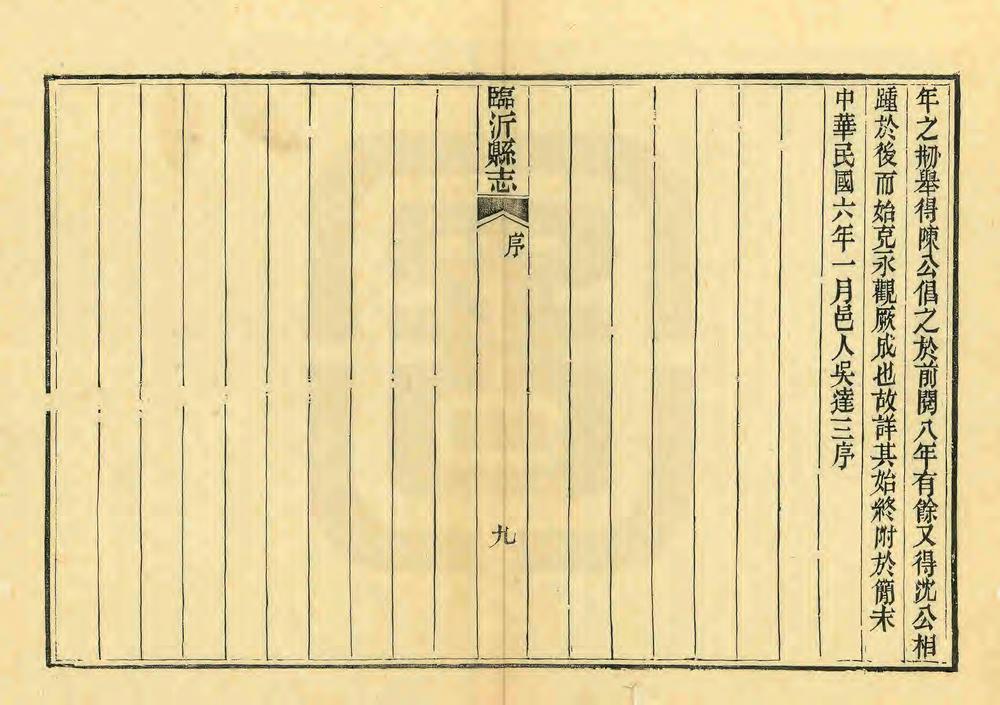 年之刱舉得陳公倡之於前閱八年有餘又得沈公相
踵於後而始克永觀厥成也故詳其始終附於簡末
中華民國六年一月邑人吳達三序
臨沂縣志
序
九